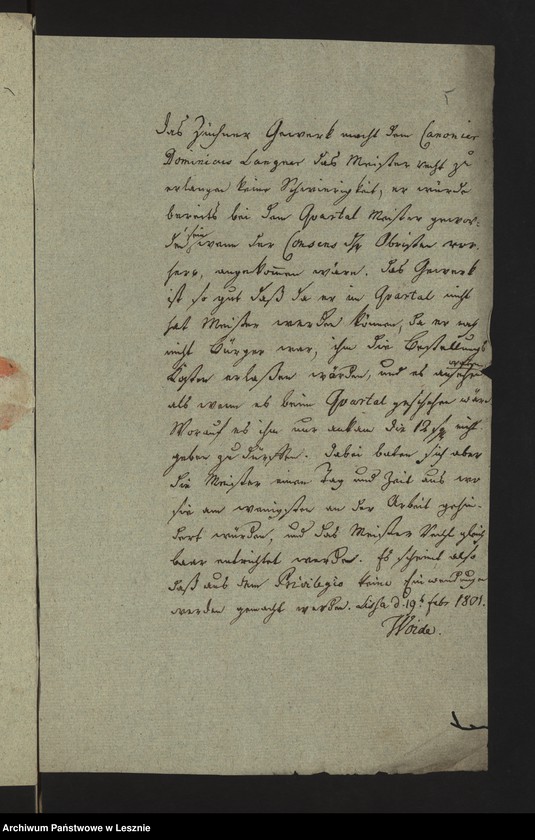 Das Züchner Gewerk macht dem Canonier
Dominicus Langner das Meister recht zu
erlangen keine Schwierigkeit, er würde
bereits bei dem Quartal Meister gewor-
den sein wenn der Consens Obristen vor-
hero, angekommen wäre. das Gewerk
ist so gut daß da er im Quartal nicht
hat Meister werden können, da er noch
nicht Bürger war, ihm die Bestellungs
Kosten erlaßen würden, und es
als wenn es beim Quartal geschehen wäre
Worauf es ihm nur ankam die 12 nicht
geben zu dürffen. Dabei baten sich aber
die Meister einen Tag und Zeit aus wo
sie am wenigsten an der Arbeit gehin-
dert würden, und das Meister Recht gleich
baar entrichtet werde. Es scheint also
daß aus dem Privilegio keine Einwendungen
werden gemacht werden. Lissa d. 19t Febr 1801.
Woide.
Archiwum Państwowe w Lesznie